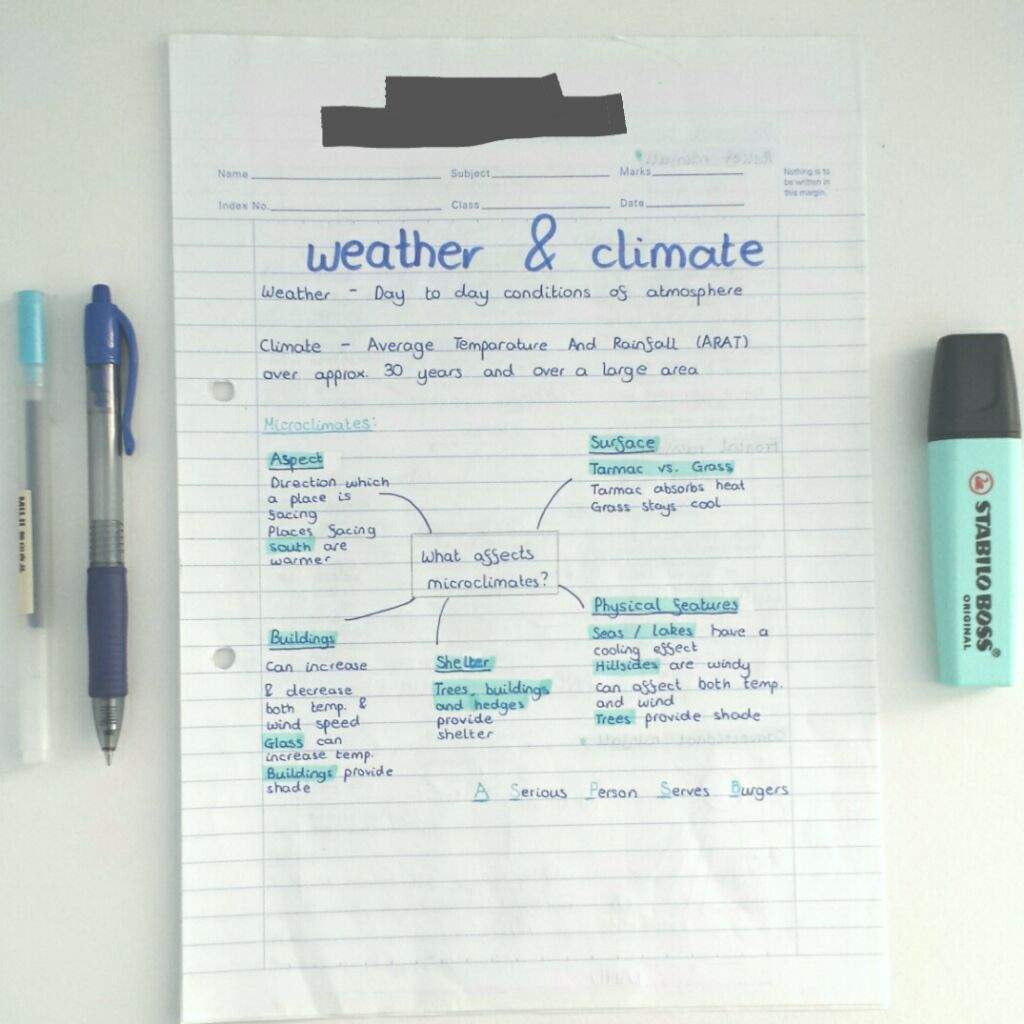 Name
Subject
Marks
Nothing is to
be written in
this margin.
Index No.
Class
Date
weather & climate
Weather - Day to day conditions of atmosphere
Climate - Average Temparature And Rainfall (ARAT)
over approx. 30 years and over a large area
Microclimates:
Aspect
Direction which
a place is
facing
Places facing
south are
warmer
Surface
Tarmac vs. Grass
Tarmac absorbs heat
Grass stays cool
What affects
microclimates?
Buildings
Can increase
& decrease
both temp. &
wind speed
Glass can
increase temp.
Buildings provide
shade
Shelter
Trees, buildings
and hedges
provide
shelter
Physical features
Seas / lakes have a
cooling effect
Hillsides are windy
Can affect both temp.
and wind
Trees provide shade
A Serious Person Serves Burgers
STABILO BOSS®
ORIGINAL